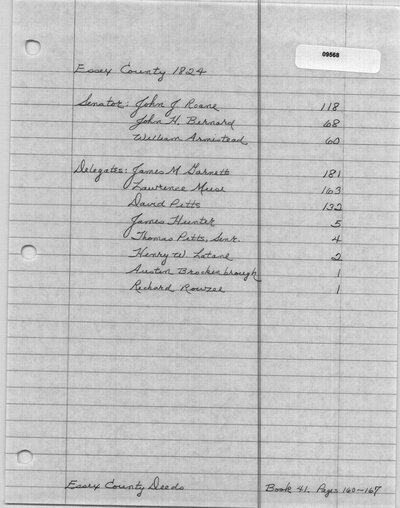 09568
Essex County 1824
Senator: John J. Roane 118
John H. Bernard 68
William Armistead 60
Delegates: James M Garnett 181
Lawrence Muse 163
David Pitts 132
James Hunter 5
Thomas Pitts, Senr. 4
Henry W. Latane 2
Austin Brockenbrough 1
Richard Rowzee 1
Essex County Deeds Book 41. Pages 160-167